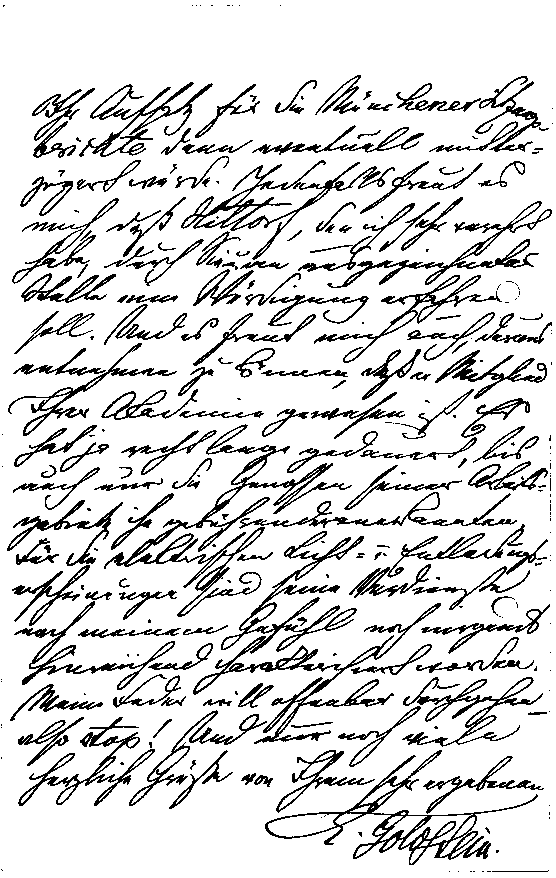 Ihr Aufsatz für die Münchener Sitzungs-
berichte dann eventuell mitver-
zögert würde. Jedenfalls freut es
mich, daß Hittorf, den ich sehr verehrt
habe, durch Sie an ausgezeichneter
Stelle eine Würdigung erfahren
soll. Und es freut mich auch, daraus
entnehmen zu können, daß er Mitglied
Ihrer Akademie gewesen ist. Es
hat ja recht lange gedauert, bis
auch nur die Genossen seines Arbeits-
gebiets ihn gebührend anerkannten.
Für die elektrischen Licht- u. Entladungs-
erscheinungen sind seine Verdienste
nach meinem Gefühl noch nirgends
hinreichend charakterisiert worden.
Meine Feder will offenbar durchgehen –
also stop! Und nur noch viele
herzliche Grüße von Ihrem sehr ergebenen
E. Goldstein.